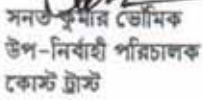 সনত কুমার ভৌমিক
উপ-নির্বাহী পরিচালক
কোস্ট ট্রাস্ট